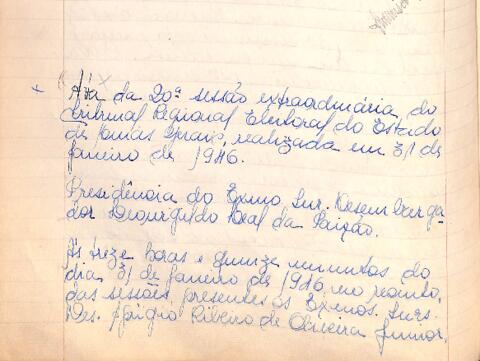 Ata da 20ª sessão extraordinária do
Tribunal Regional Eleitoral do Estado
de Minas Gerais, realizada em 31 de
Janeiro de 1946.
Presidência do Exmo. Snr. Desembarga-
dor Leal da Paixão.
Às treze horas e quinze minutos do
dia 31 de Janeiro de 1946, no recinto
das sessões, presentes os Exmos. Snrs.
Des. Afrigio Ribeiro de Oliveira Junior,